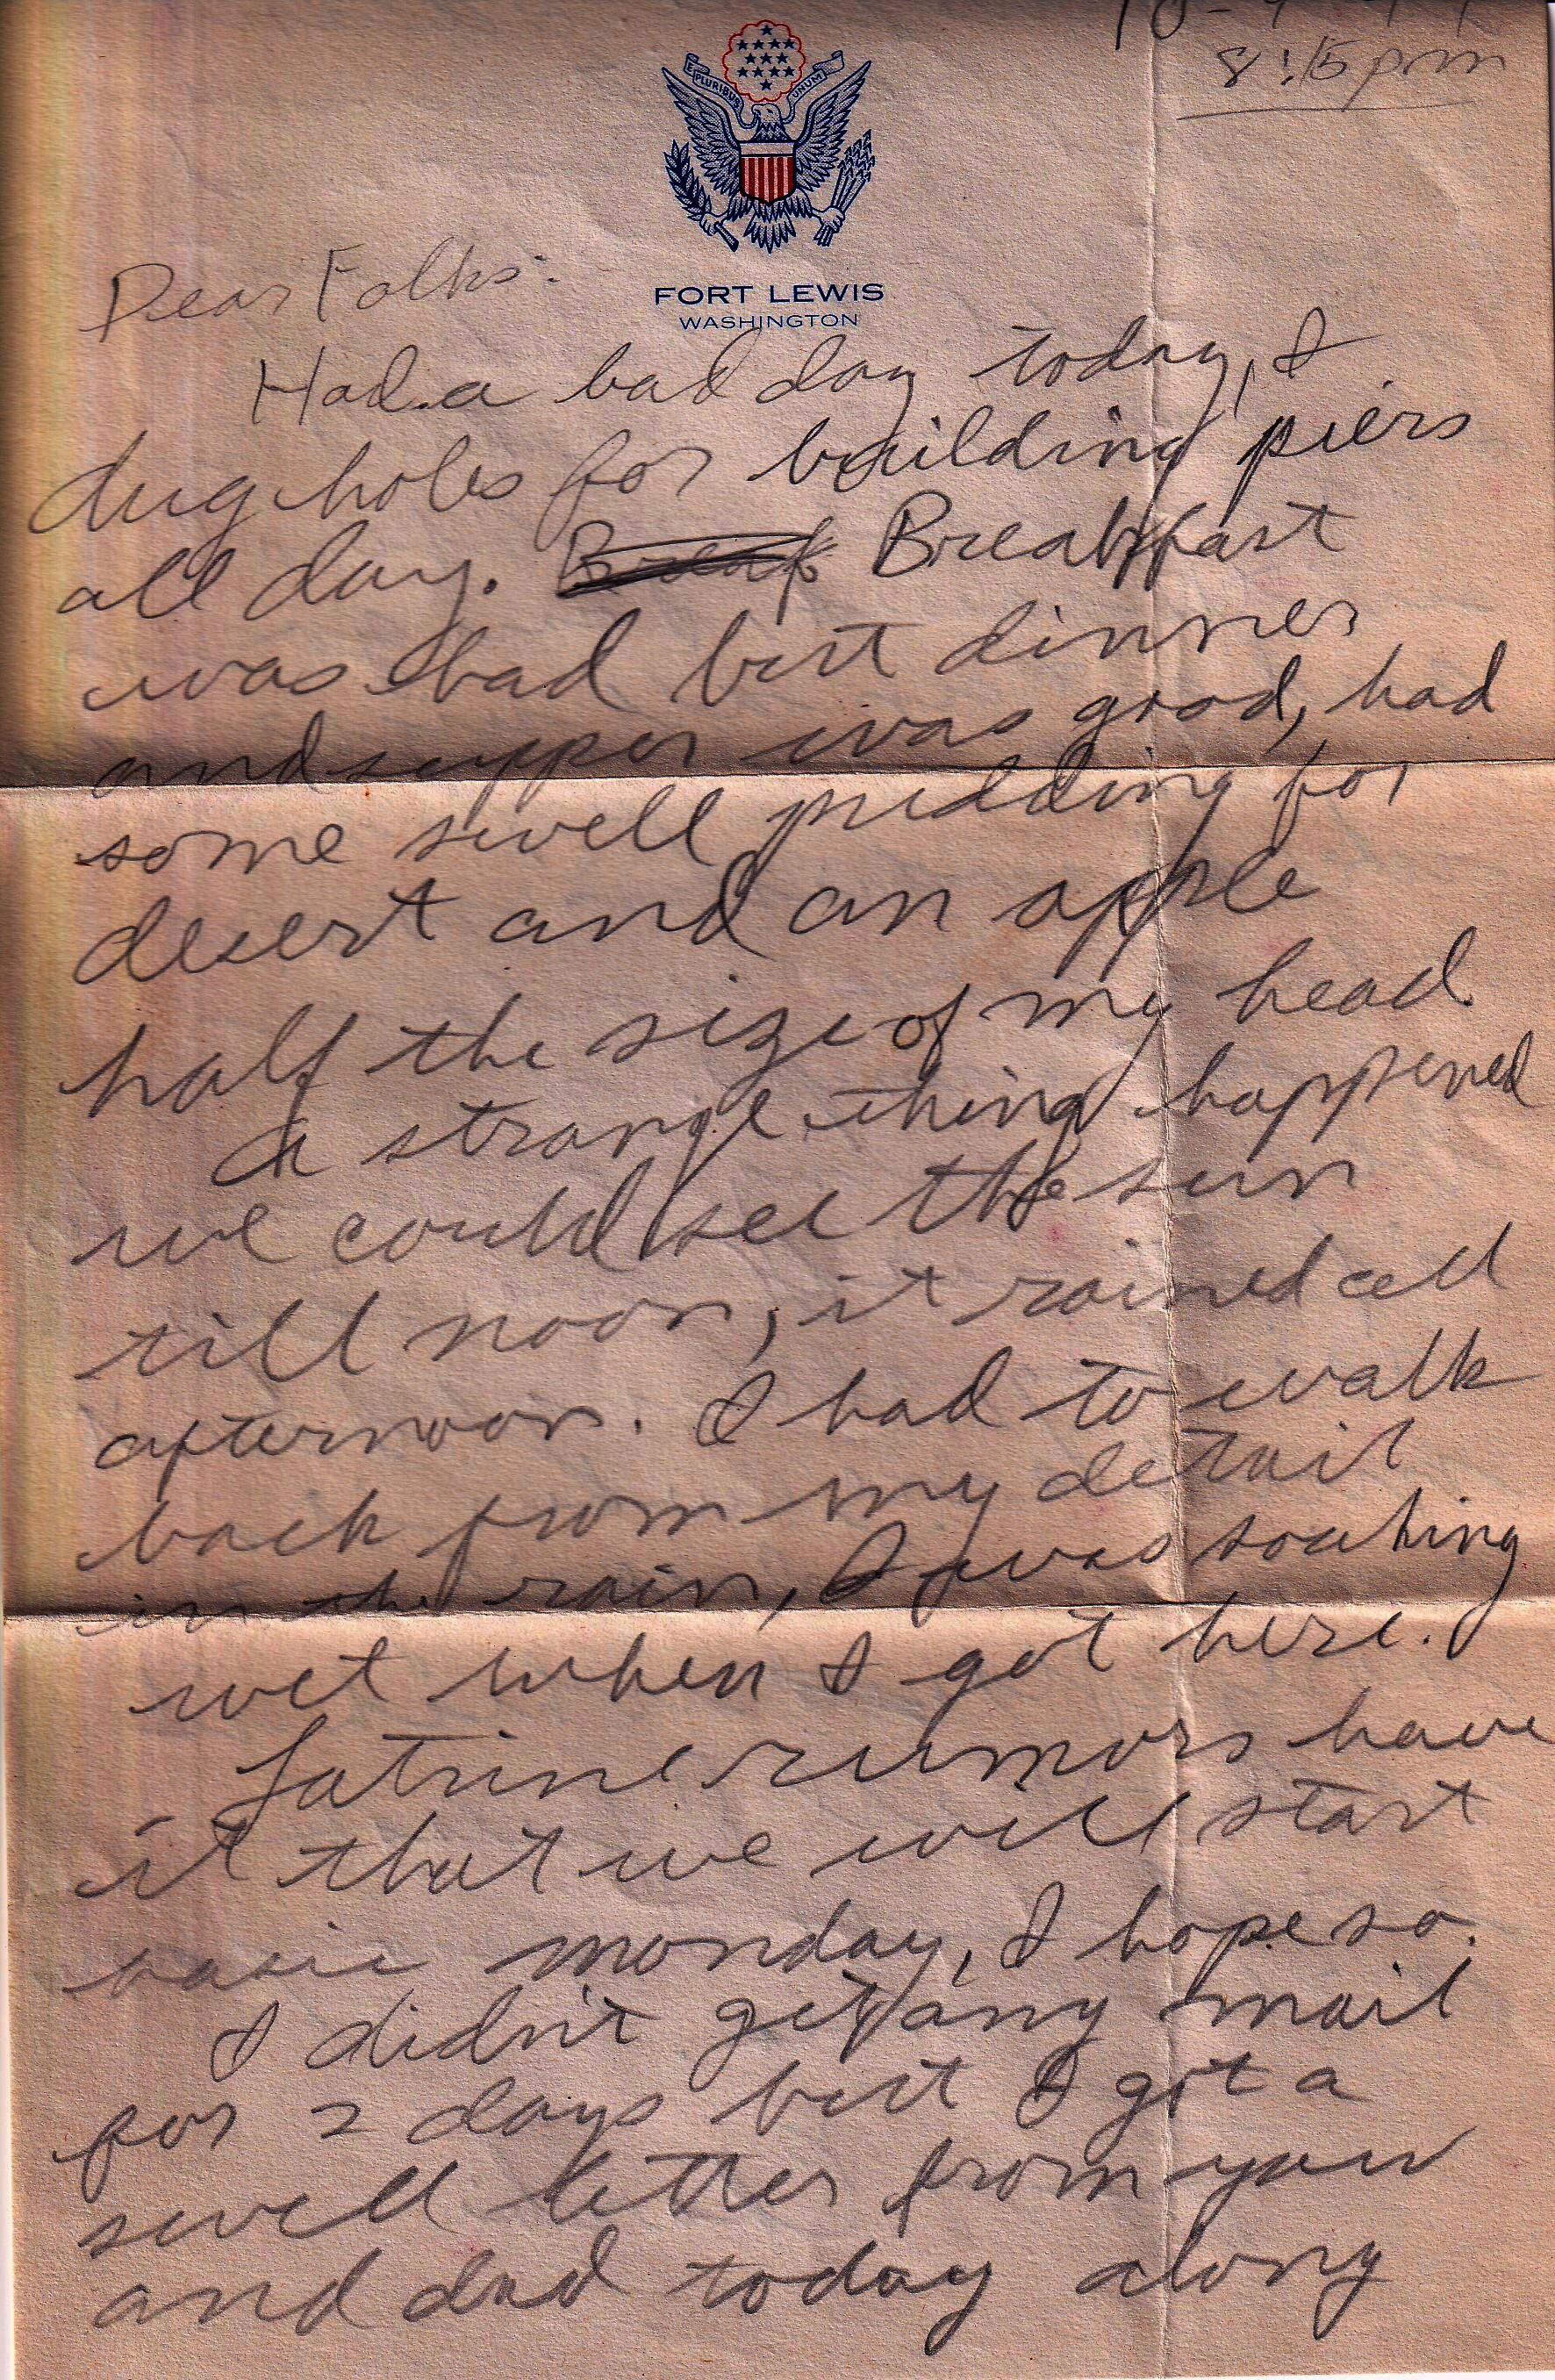 8:15 pm
E PLURIBUS UNUM
FORT LEWIS
WASHINGTON
Dear Folks:
Had a bad day today, I
dug holes for building piers
all day. Breakfast
was bad but dinner
and supper was good, had
some swell pudding for
desert and an apple
half the size of my head
A strange thing happened
we could see the sun
till noon, it rained all
afternoon. I had to walk
back from my detail
in the rain, I was soaking
wet when I got here.
Latrine rumors have
it that we will start
basic monday, I hope so.
I didn't get any mail
for 2 days but I got a
swell letter from you
and dad today along